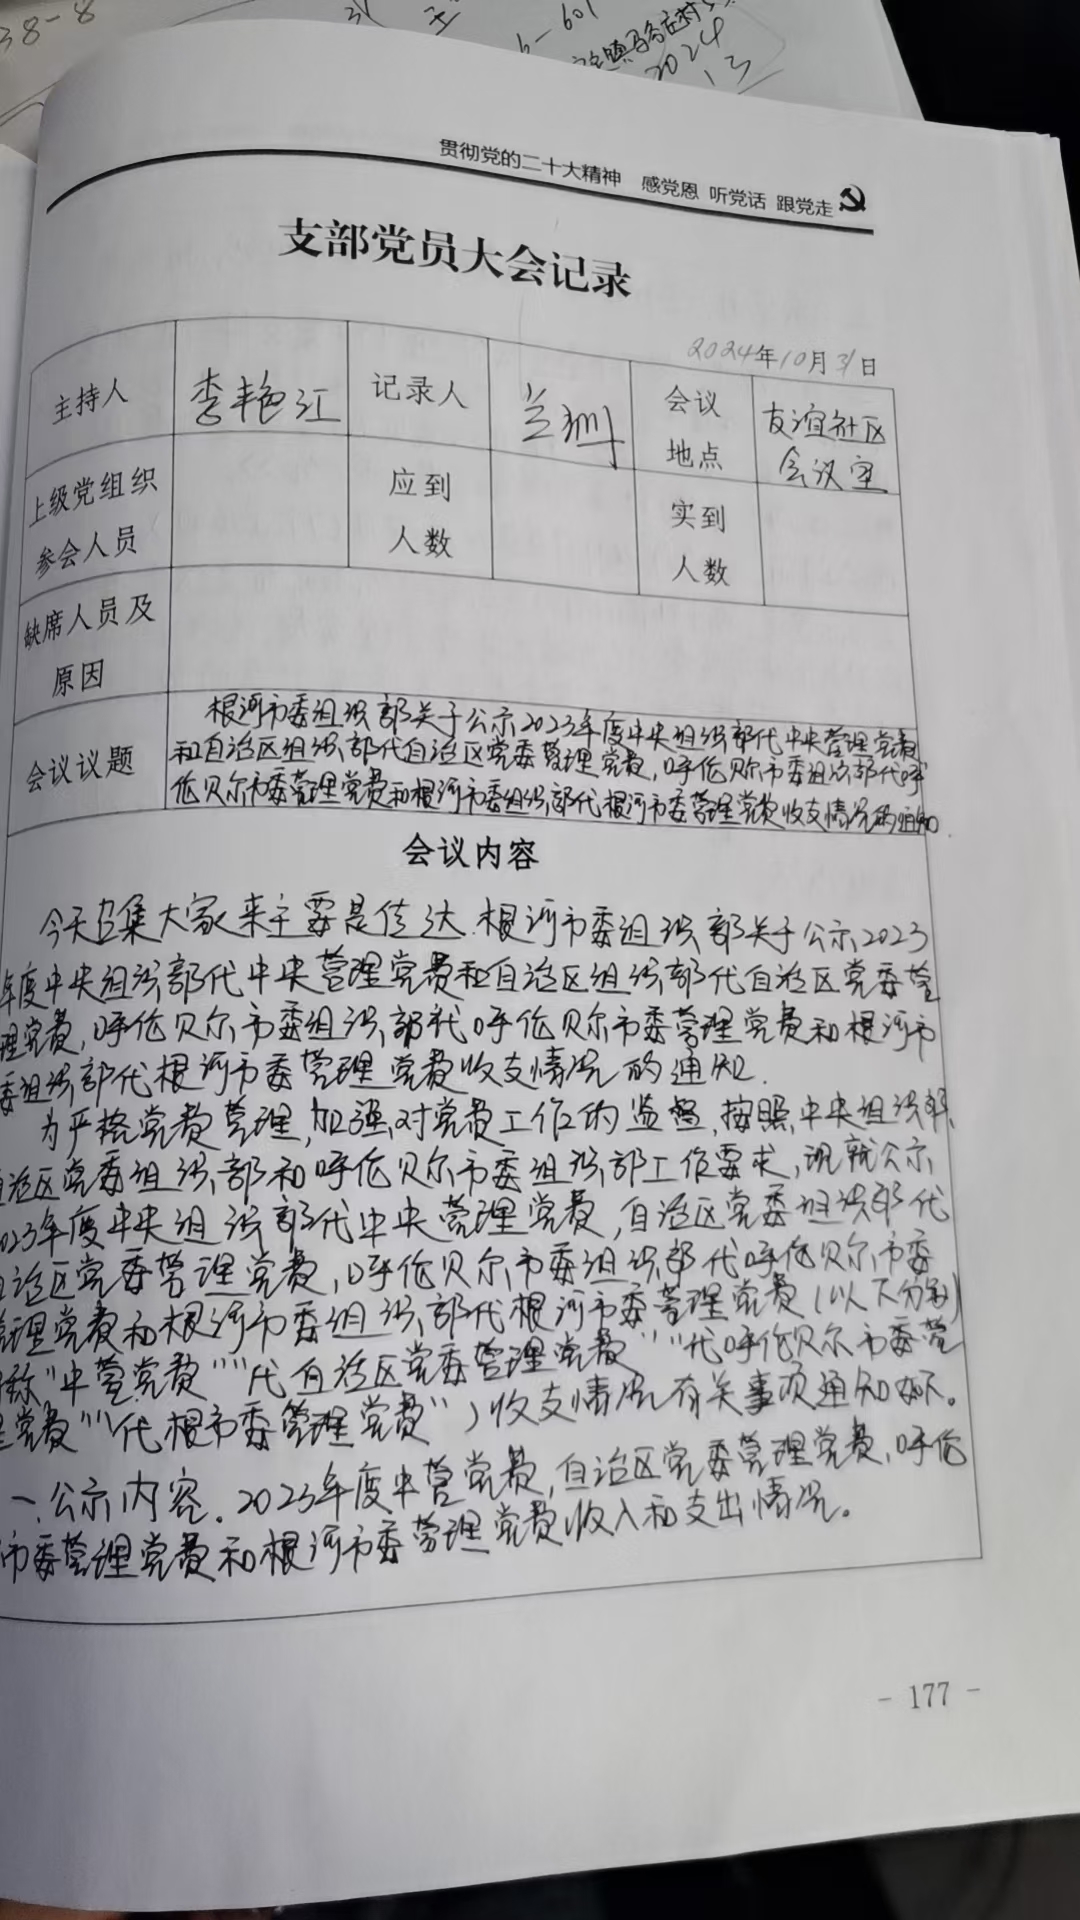 38-8
6-601
2024
13
贯彻党的二十大精神 感党恩 听党话 跟党走
支部党员大会记录
2024年10月31日
主持人 李艳江 记录人 兰珊 会议地点 友谊社区会议室
上级党组织参会人员 应到人数 实到人数
缺席人员及原因
会议议题
根河市委组织部关于公示2023年度中央组织部代中央管理党费
和自治区组织部代自治区党委管理党费,呼伦贝尔市委组织部代呼
伦贝尔市委管理党费和根河市委组织部代根河市委管理党费收支情况的通知
会议内容
今天召集大家来主要是传达根河市委组织部关于公示2023
年度中央组织部代中央管理党费和自治区组织部代自治区党委管
理党费,呼伦贝尔市委组织部代呼伦贝尔市委管理党费和根河市
委组织部代根河市委管理党费收支情况的通知.
为严格党费管理,加强对党费工作的监督,按照中央组织部、
自治区党委组织部和呼伦贝尔市委组织部工作要求,现就公示
2023年度中央组织部代中央管理党费,自治区党委组织部代
自治区党委管理党费,呼伦贝尔市委组织部代呼伦贝尔市委
管理党费和根河市委组织部代根河市委管理党费(以下分别
称“中管党费”“代自治区党委管理党费”“代呼伦贝尔市委管
理党费”“代根市委管理党费”)收支情况有关事项通知如下。
一、公示内容.2023年度中管党费,自治区党委管理党费,呼伦
市委管理党费和根河市委管理党费收入和支出情况。
- 177 -